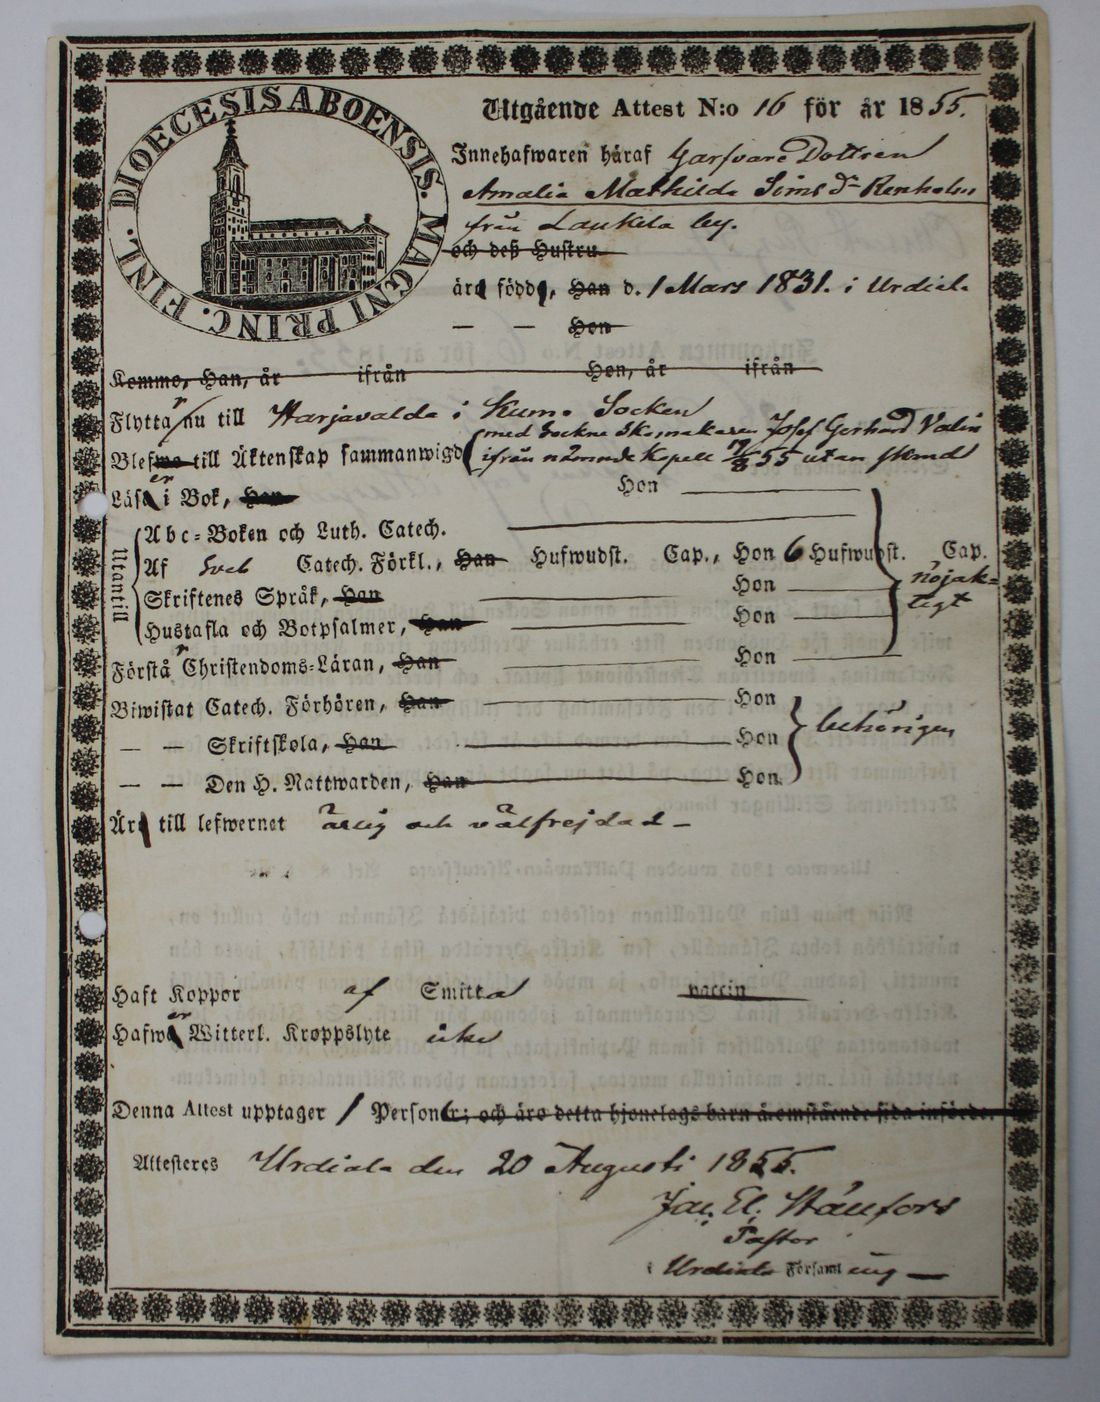 DIOECESIS ABOENSIS. MAGNI PRINC. FINL.
Utgående Attest N:o 16 för år 1855.
Innehafwaren häraf Garfvare Dottren
Amalia Mathilda Sims dr Renholm
från Laukela by.
och deß Hustru
äro födde, Han d. 1 Mars 1831. i Urdiala
— — Hon
Kommo, Han, år ifrån Hon, år ifrån
Flyttar nu till Harjavalda i Kumo Socken
med Sockne Skomakaren Josef Gerhard Valin
Blefwo till Äktenskap sammanwigd ifrån nämnde Kapell 55 utan
Läser i Bok, Han Hon
Utantill
Abc-Boken och Luth. Catech.
Af Sveb Catech. Förkl., Han Hufwudst. Cap., Hon 6 Hufwudst. Cap.
Skriftenes Språk, Han Hon
nöjaktigt
Hustafla och Botpsalmer, Han Hon
Förstår Christendoms-Läran, Han Hon
Biwistat Catech. Förhören, Han Hon
— — Skriftskola, Han Hon
behörigen
— — Den H. Nattwarden, Han Hon
Äro till lefwernet ärlig och välfrejdad —
Haft Koppor af Smitta vaccin
Hafwer Witterl. Kroppslyte icke
Denna Attest upptager 1 Personer; och äro detta hjonelags barn å omstående sida införde.
Attesteres Urdiala den 20 Augusti 1855.
Jac. El. Stånfors
Pastor
i Urdiala Församling —